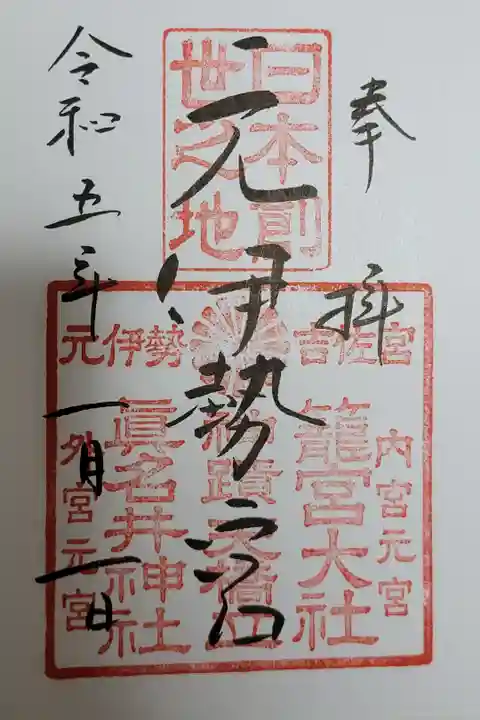 奉拝
元伊勢宮
令和五年一月一日
日本創
世之地
吉佐宮
内宮元宮
籠宮大社
神蹟天橋立
元伊勢
眞名井神社
外宮元宮